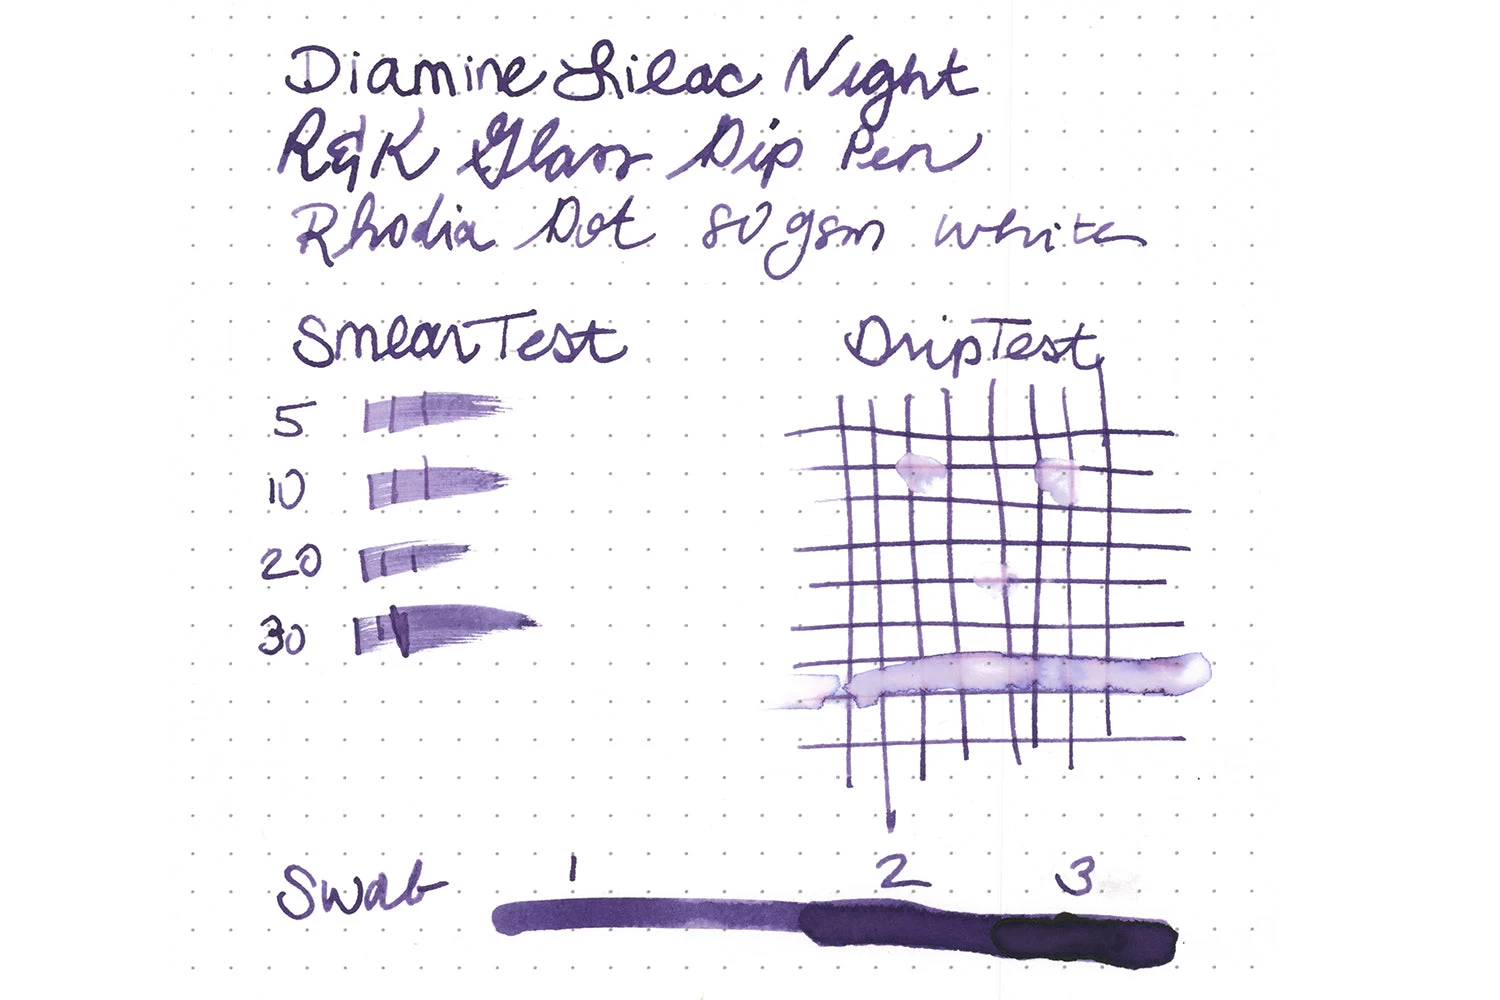 Diamine Lilac Night
R&K Glass Dip Pen
Rhodia Dot 80gsm white
Smear Test
Drip Test
5
10
20
30
Swab 1 2 3